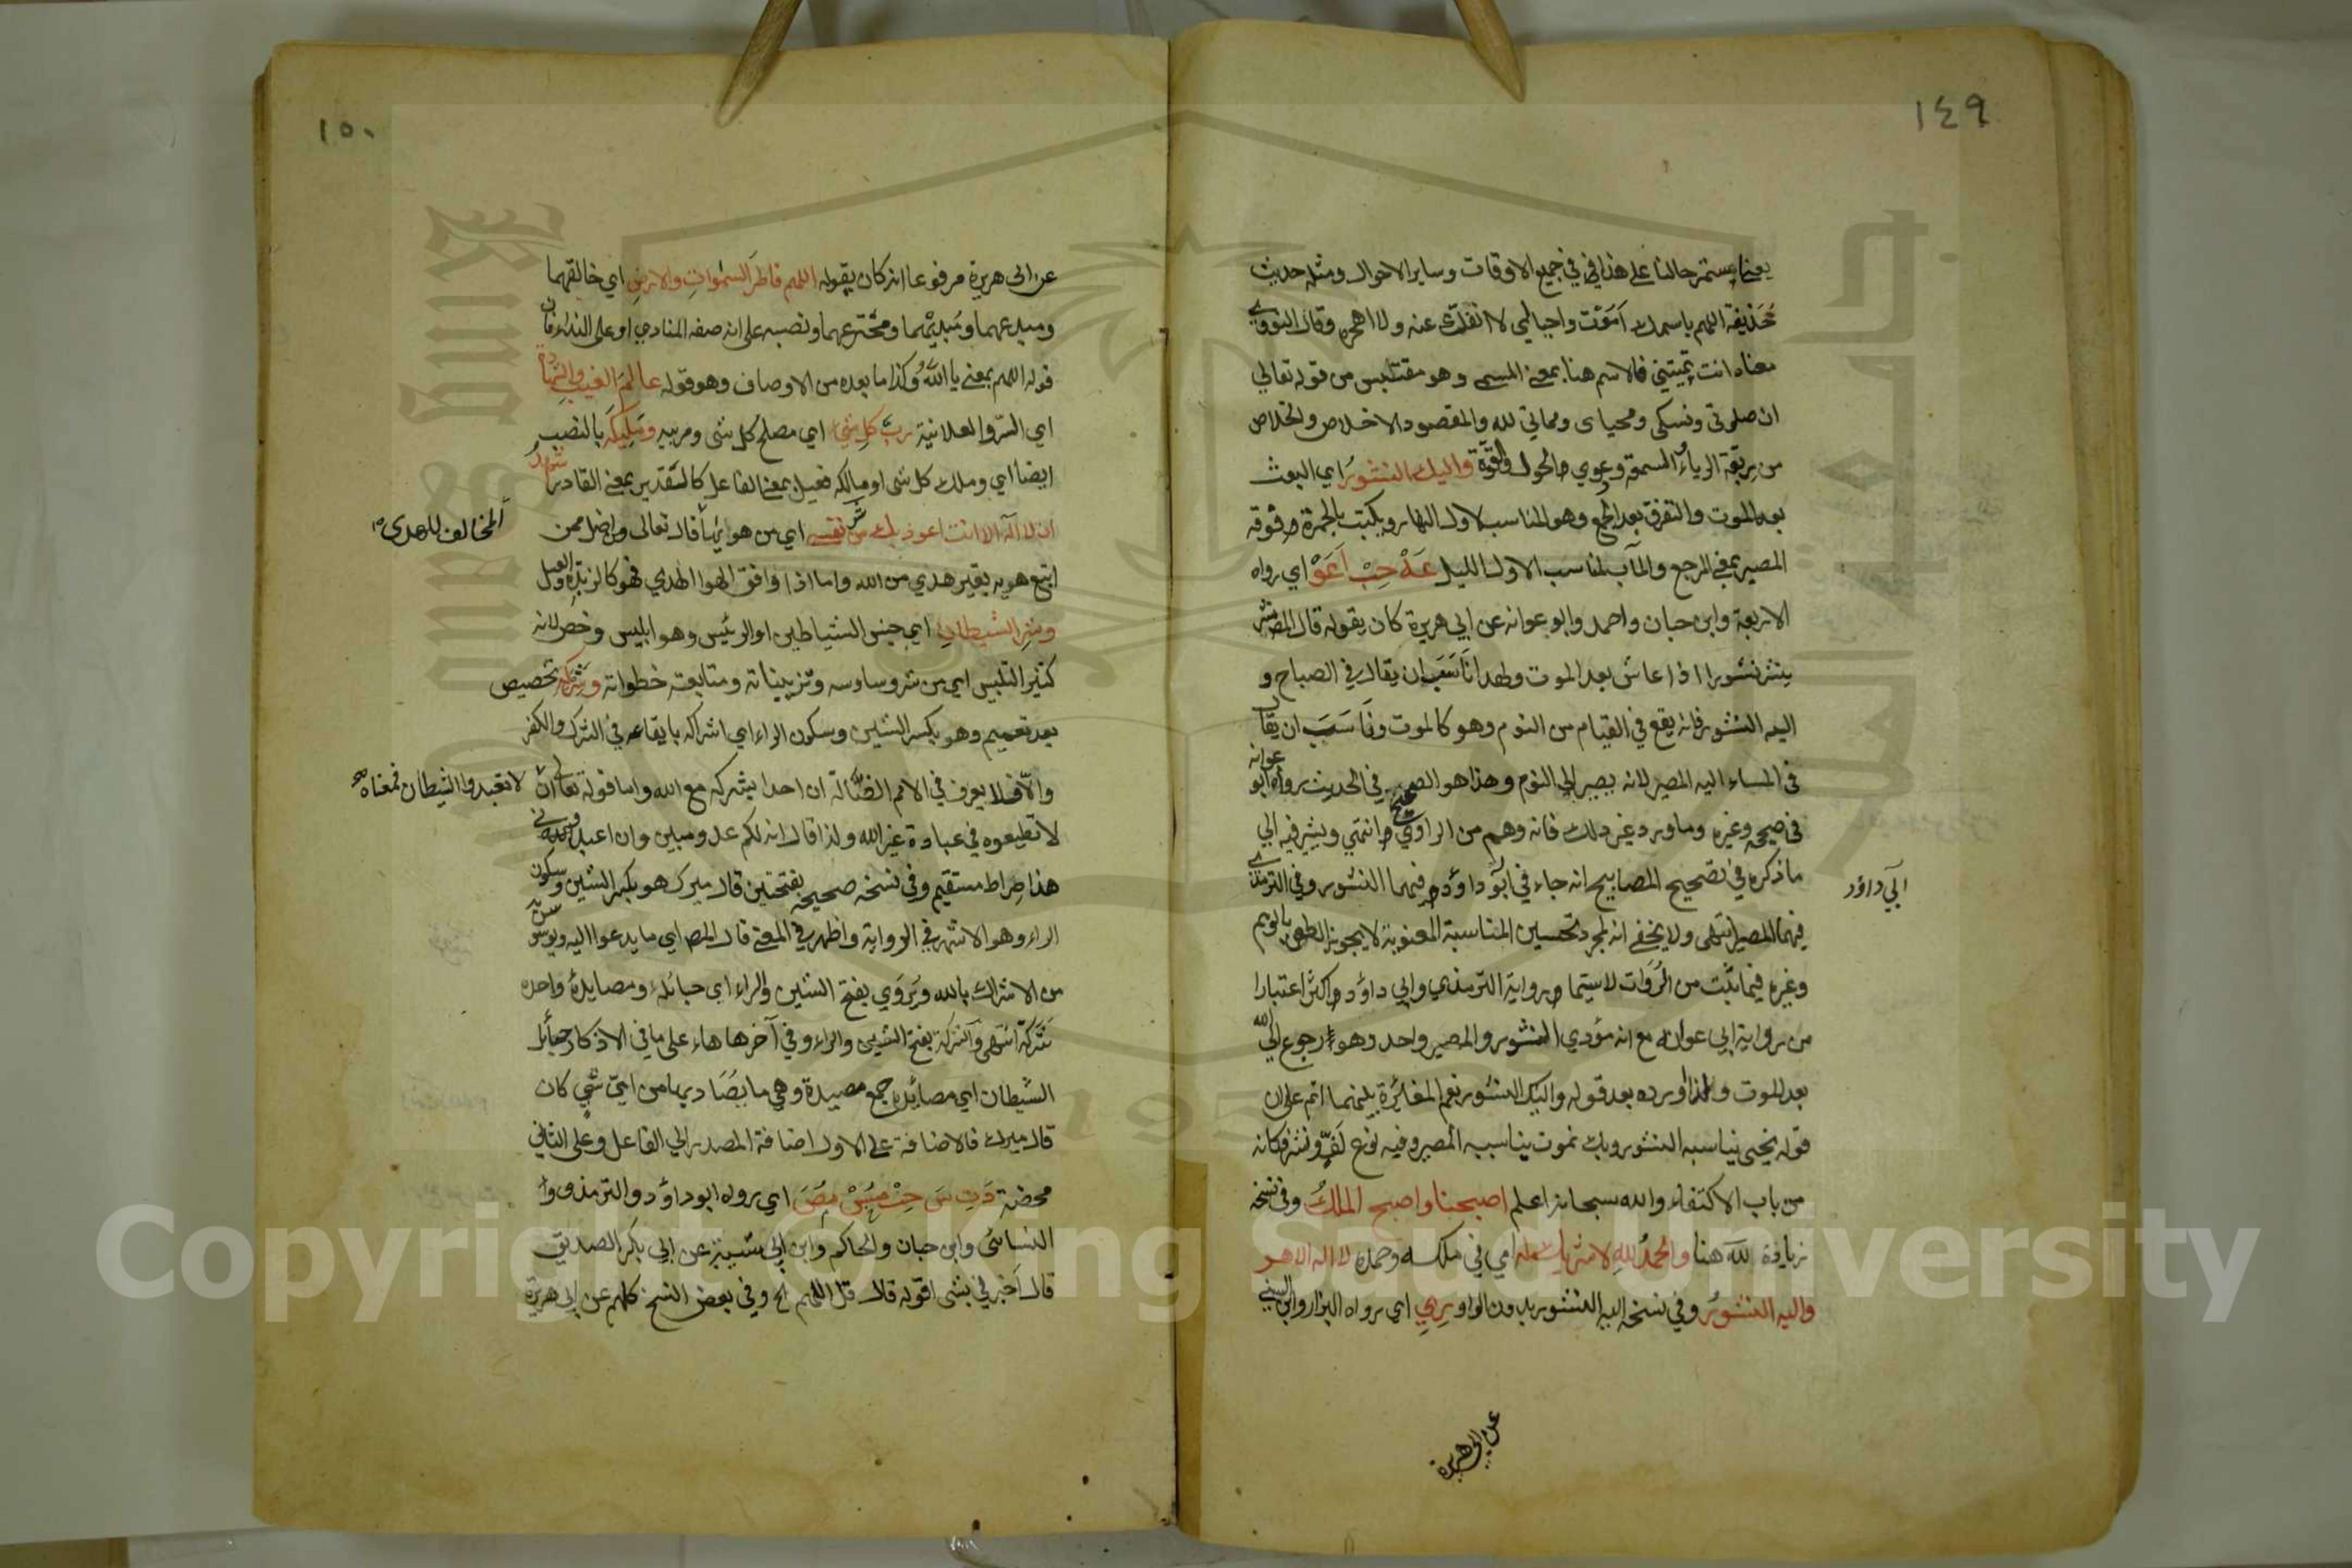 ١٤٩
يعني يستمر حالنا على هذا في جميع الاوقات وساير الاحوال ومثله حديث
حذيفة اللهم باسمك اموت واحيا اي لا انفك عنه ولا اهجره وقال النووي
معناه انت تميتني فالاسم هنا بمعنى المسمى وهو مقتبس من قوله تعالى
ان صلوتي ونسكي ومحياي ومماتي لله والمقصود الاخلاص والخلاص
من ربقة الرياء والسمعة ودعوي الحول والقوة واليك النشور اي البعث
بعد الموت والتفرق بعد الجمع وهو المناسب لاول النهار ويكتب بالحمرة فوقه
المصير بمعنى المرجع والمآب المناسب الاول الليل عه حب ا عو اي رواه
الاربعة وابن حبان واحمد وابو عوانه عن ابي هريرة كان يقوله قال المص نشر
ينشر نشورا اذا عاش بعد الموت ولهذا ناسب ان يقال في الصباح و
اليه النشور فانه يقع في القيام من النوم وهو كالموت وناسب ان يقال
في المساء اليه المصير لانه يصير الى النوم وهذا هو الصحيح في الحديث رواه ابو عوانه
في صحيحه وغيره وما ورد غير ذلك فانه وهم من الراوي انتهى ويشير فيه الى
ما ذكره في تصحيح المصابيح انه جاء في ابو داود فيهما النشور وفي الترمذي
ابي داود
فيهما المصير انتهى ولا يخفى انه لمجرد تحسين المناسبة المعنوية لا يجوز الطعن بالوهم
وغيره فيما ثبت من الروات لاسيما رواية الترمذي وابي داود اكثر اعتبارا
من رواية ابي عوانه مع انه مؤدي النشور والمصير واحد وهو الرجوع الى الله
بعد الموت ولهذا اورده بعد قوله واليك النشور نعم المغايرة بينهما اتم على ان
قوله نحيى يناسبه النشور وبك نموت يناسبه المصير وفيه نوع لف ونشر فكانه
من باب الاكتفاء والله سبحانه اعلم اصبحنا واصبح الملك وفي نسخة
زيادة لله هنا والحمد لله لا شريك له اي في ملكه وحمده لا اله الا هو
واليه النشور وفي نسخه اليه النشور بدون الواو ر ي اي رواه البزار وابن السني
عن ابي هريرة
١٥٠
عن ابي هريرة مرفوعا انه كان يقوله اللهم فاطر السموات والارض اي خالقهما
ومبدعهما ومبديهما ومخترعهما ونصبه على انه صفه المنادي او على النداء فان
قوله اللهم بمعنى يا الله وكذا ما بعده من الاوصاف وهو قوله عالم الغيب والشهادة
اي السر والعلانية رب كل شي اي مصلح كل شي ومربيه ومليكه بالنصب
ايضا اي وملك كل شي او مالكه فعيل بمعنى الفاعل كالقدير بمعنى القادر اشهد
ان لا اله الا انت اعوذ بك من شر نفسي اي من هوايها قال تعالى ومن اضل ممن
المخالف للهدى
اتبع هويه بغير هدي من الله واما اذا وافق الهوا الهدي فهو كالزبدة والعسل
وشر الشيطان اي جنس الشياطين او الرئيس وهو ابليس وخص لانه
كثير التلبيس اي من شر وساوسه وتزييناته ومتابعة خطواته وشركه تخصيص
بعد تعميم وهو بكسر الشين وسكون الراء اي اشراكه بايقاعه في الشرك والكفر
والا فلا يعرف في الامم الضالة ان احدا يشركه مع الله واما قوله تعالى ان لا تعبدوا الشيطان فمعناه
لا تطيعوه في عبادة غير الله ولذا قال انه لكم عدو مبين وان اعبدوني
هذا صراط مستقيم وفي نسخه صحيحه بفتحتين قال ميرك هو بكسر الشين وسكون
الراء وهو الاشهر في الرواية واظهر في المعنى قال المص اي ما يدعوا اليه ويوسوس به
من الاشراك بالله ويروي بفتح الشين والراء اي حبائله ومصايده واحده
شركة انتهى والشركة بفتح الشين والراء وفي آخرها هاء على ما في الاذكار حبائل
الشيطان اي مصائده جمع مصيدة وهي ما يصاد بها من اي شي كان
قال ميرك فالاضافة على الاول اضافة المصدر الى الفاعل وعلى الثاني
محضة د ت س حب مس مص اي رواه ابو داود والترمذي و
النسائي وابن حبان والحاكم وابن ابي شيبة عن ابي بكر الصديق
قال اخبرني بشي اقوله قال قل اللهم الخ وفي بعض النسخ كلهم عن ابي هريرة
Copyright © King Saud University